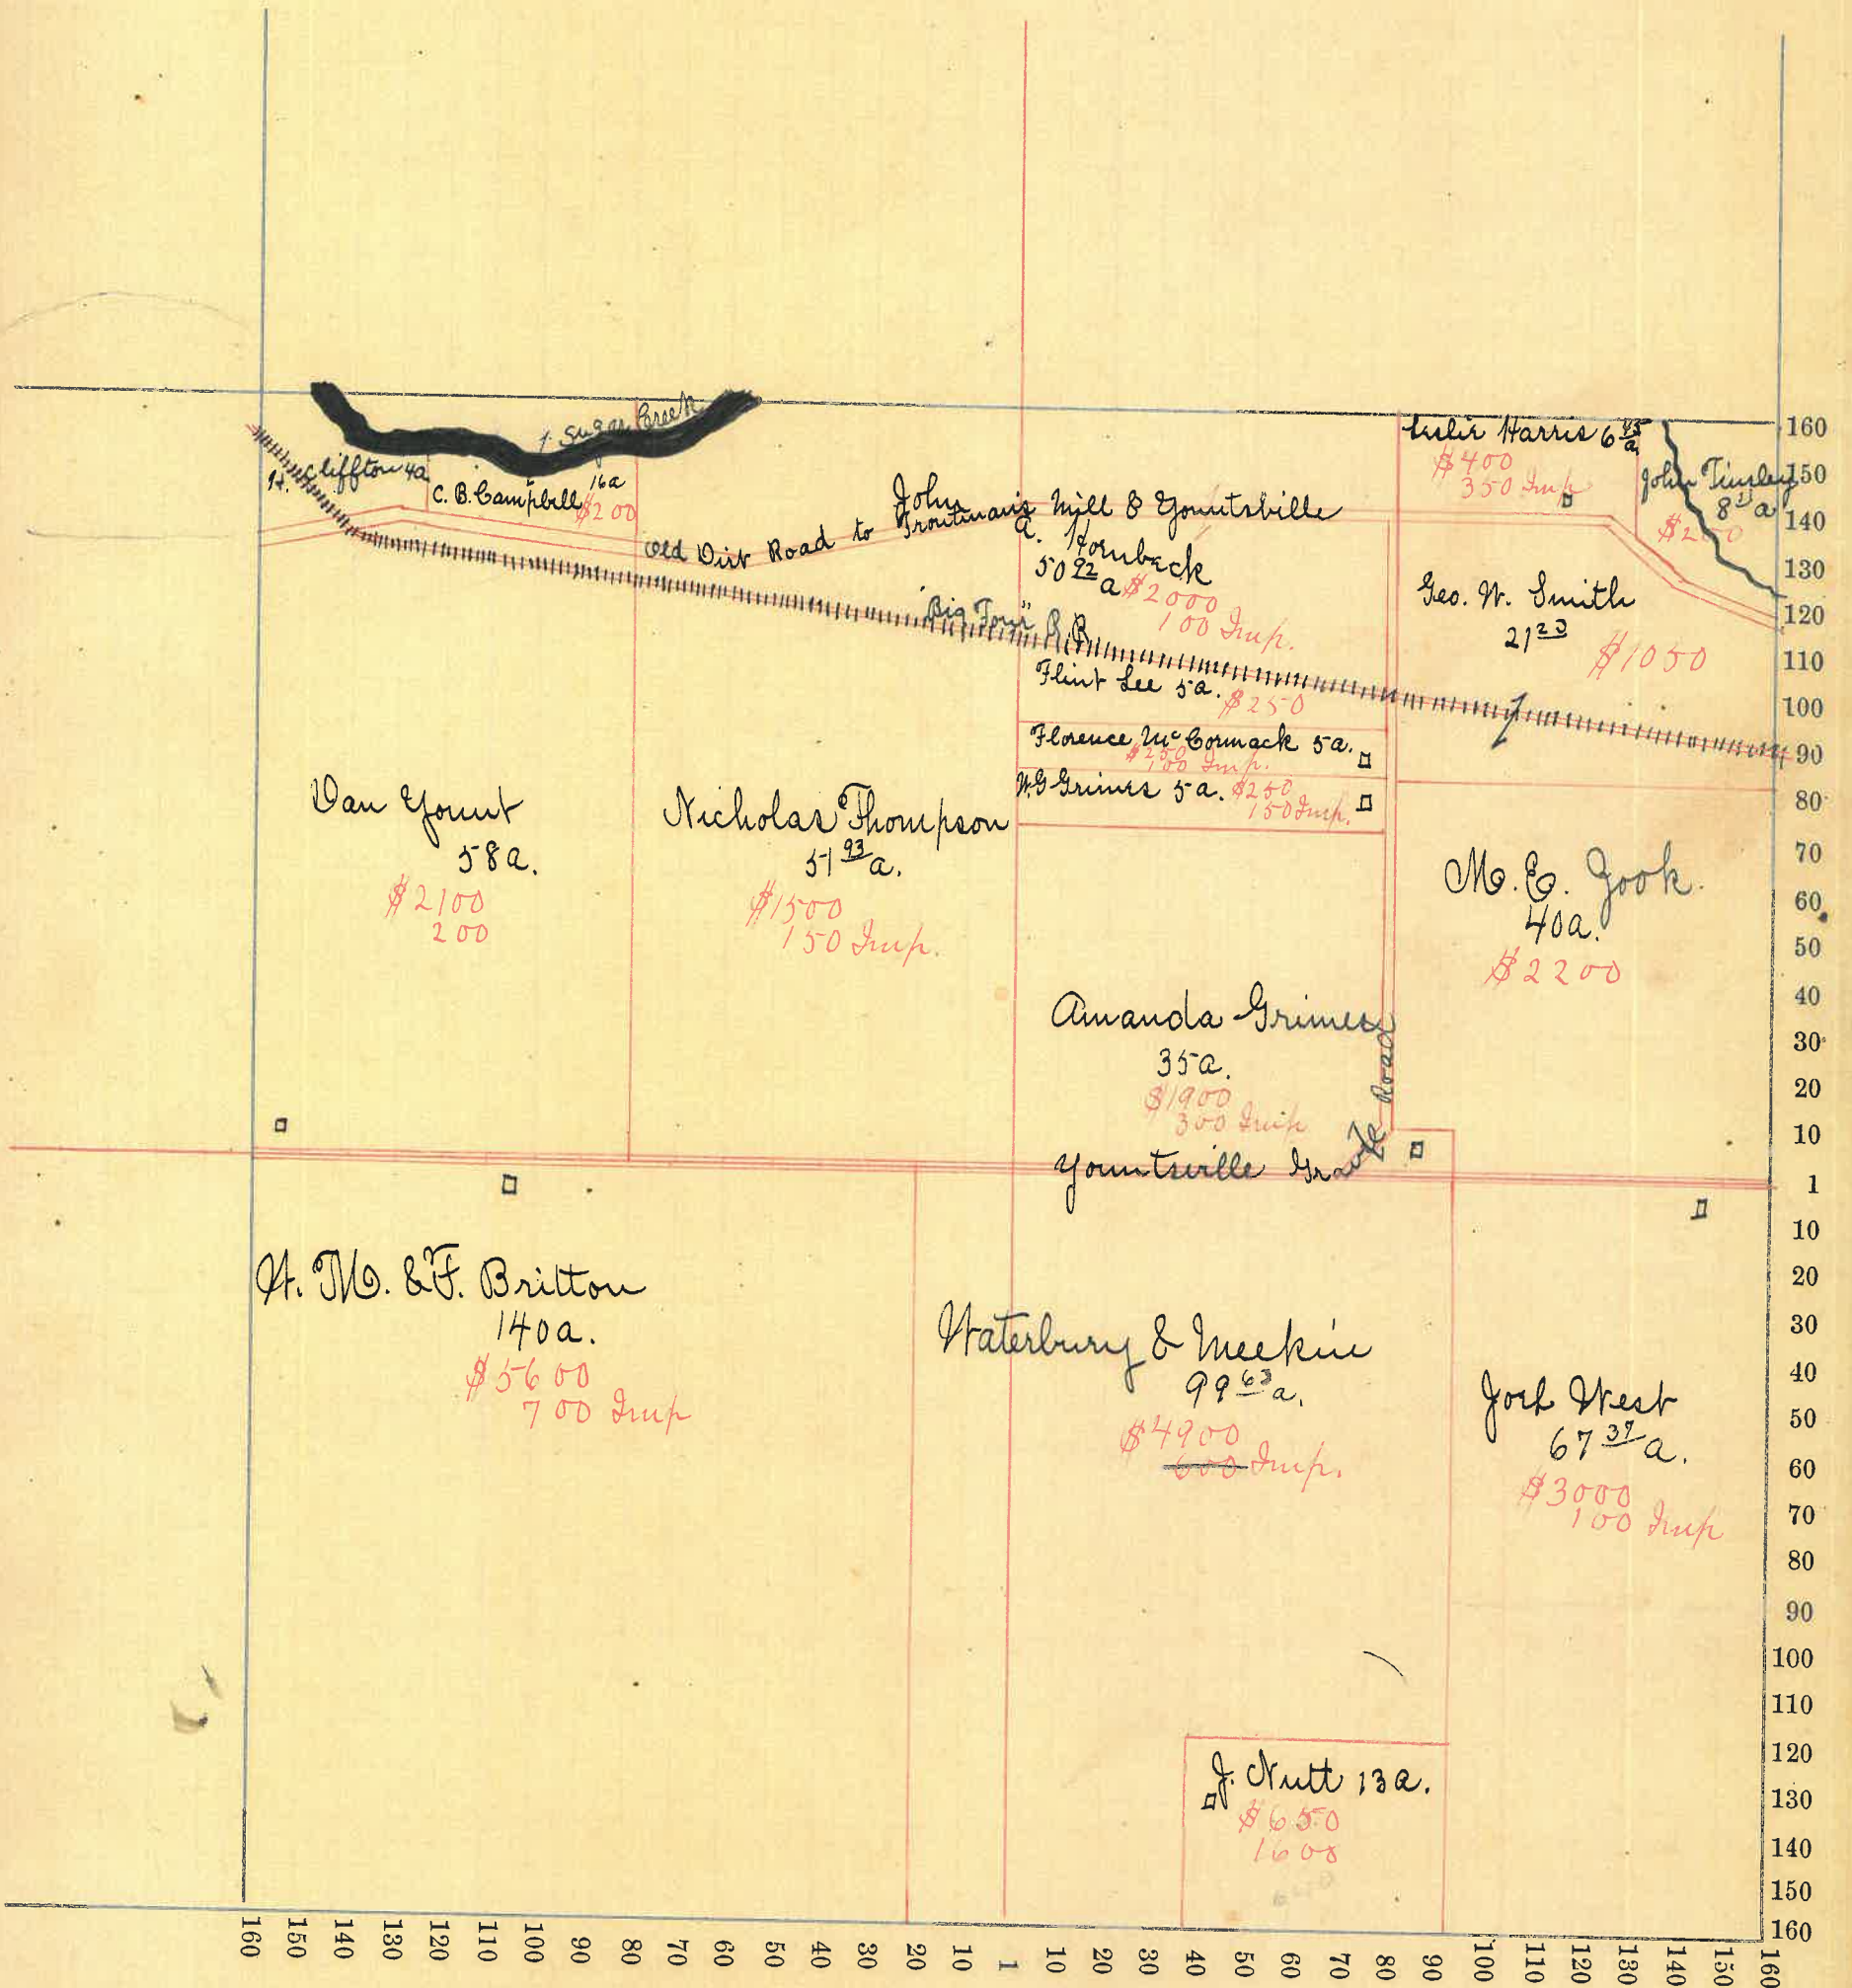 Sugar Creek
Cliffton 4a
C. B. Campbell
16a
$200
Old Dirt Road to Troutman's Mill & Yountsville
John
A. Hornback
50 92 a
$2000
100 Imp.
Leslie Harris 6 45 a
$400
350 Imp
John Tinsley
8 11 a
Geo. W. Smith
21 23
$1050
"Big Four" R R
Flint Lee 5a.
$250
Florence McCormack 5a.
$250
100 Imp.
W.G Grimes 5a.
$250
150 Imp.
Dan Yount
58a.
$2100
200
Nicholas Thompson
51 93 a.
$1500
150 Imp.
M. E. Zook.
40a.
$2200
Amanda Grimes
35a.
$1900
300 Imp
Yountsville Gravel Road
H. M. & F. Britton
140a.
$5600
700 Imp
Waterbury & Meekin
99 63 a.
$4900
600 Imp.
Josh West
67 37 a.
$3000
100 Imp
J. Nutt 13a.
$650
1600
160
150
140
130
120
110
100
90
80
70
60
50
40
30
20
10
1
10
20
30
40
50
60
70
80
90
100
110
120
130
140
150
160
160 150 140 130 120 110 100 90 80 70 60 50 40 30 20 10 1 10 20 30 40 50 60 70 80 90 100 110 120 130 140 150 160